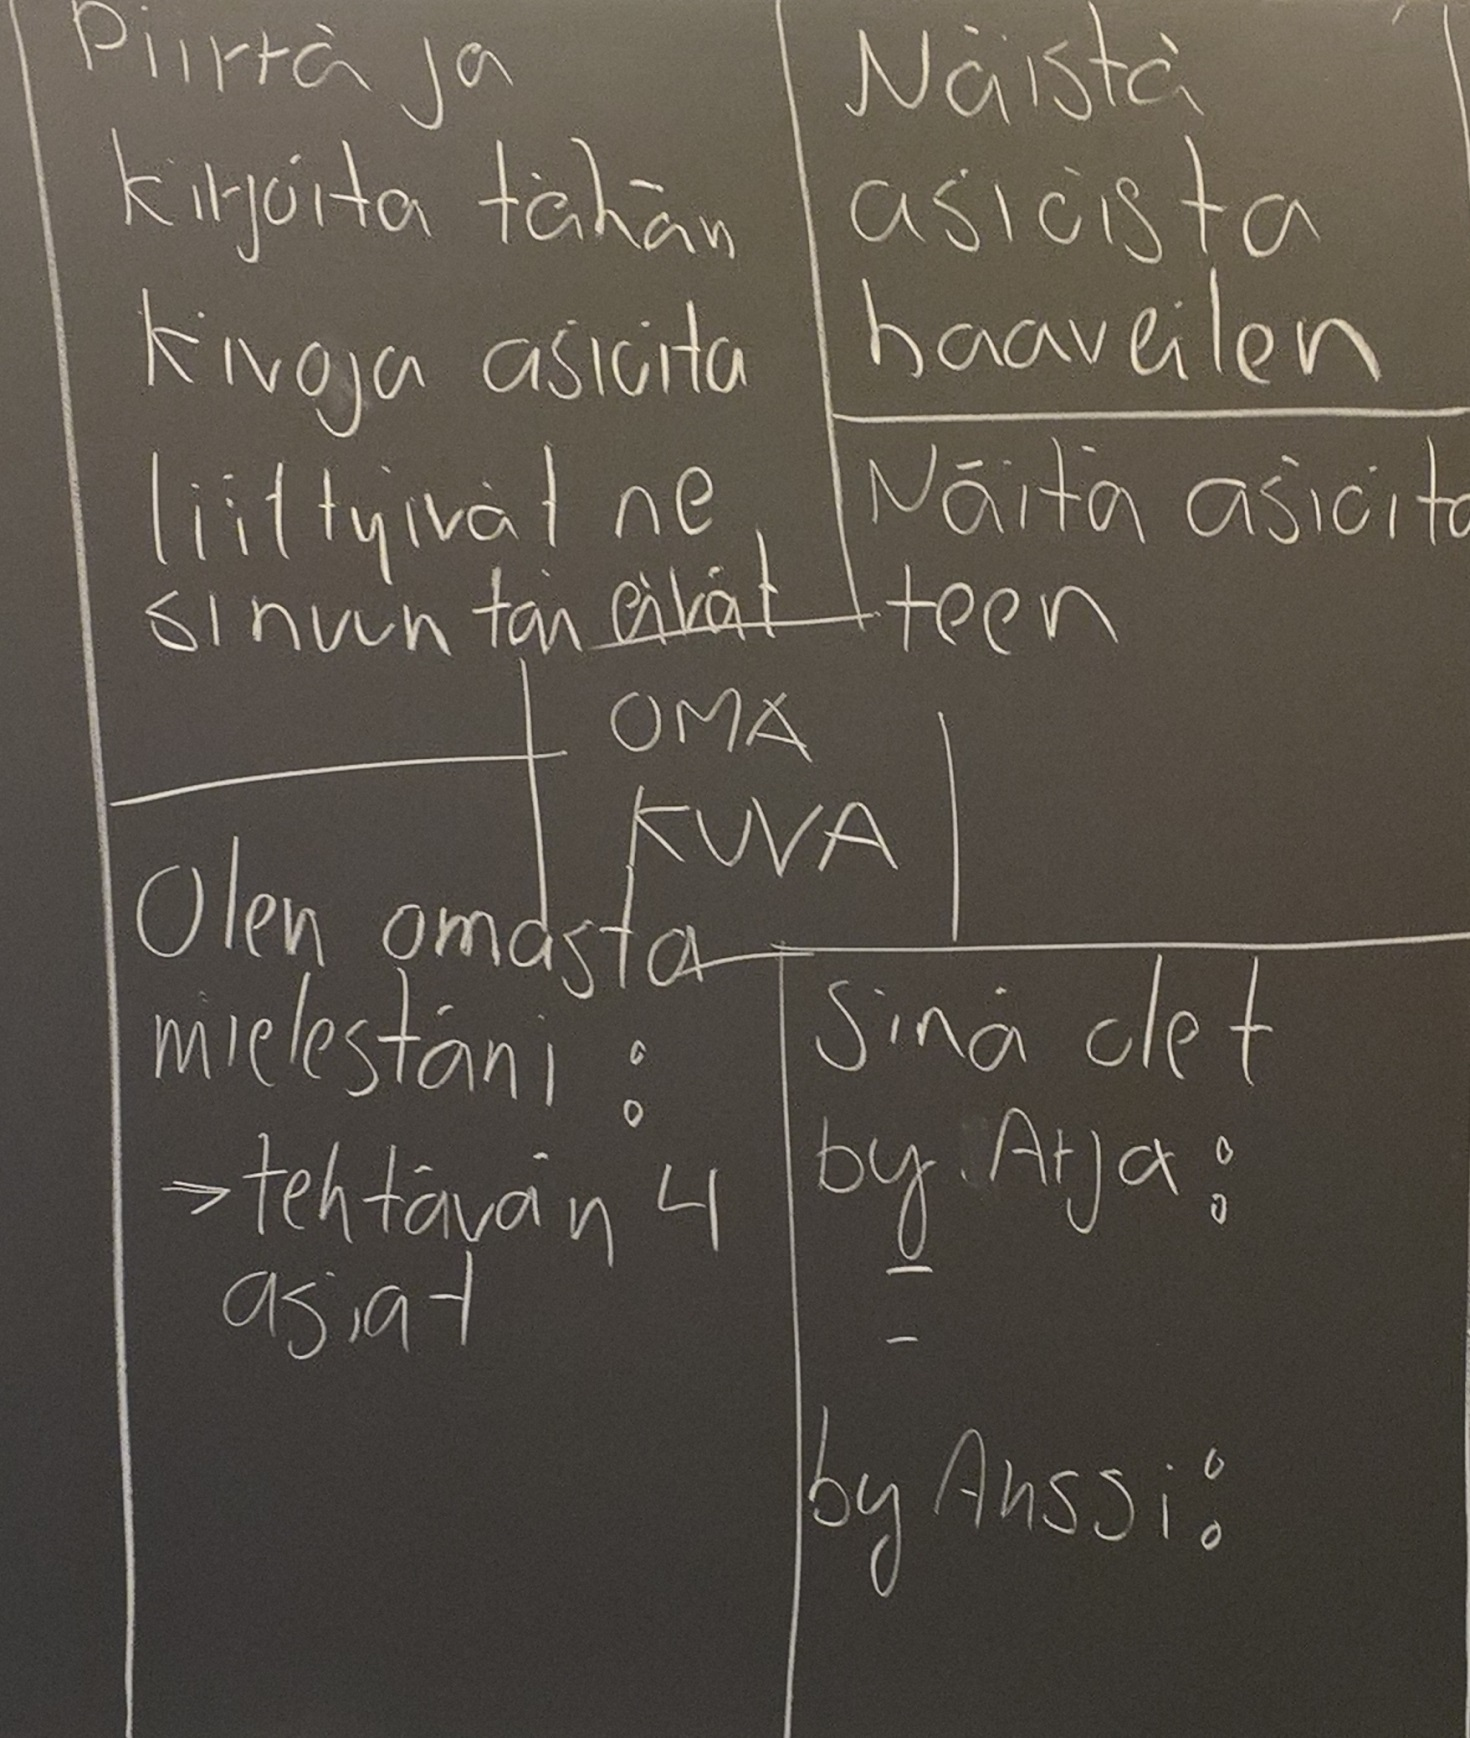 Piirtä ja
kirjoita tähän
kivoja asioita
liittyivät ne
sinuun tai eivät
Näistä
asioista
haaveilen
Näitä asioita
teen
OMA
KUVA
Olen omasta
mielestäni:
→ tehtävän 4
asiat
Sinä olet
by Arja:
-
-
by Anssi: